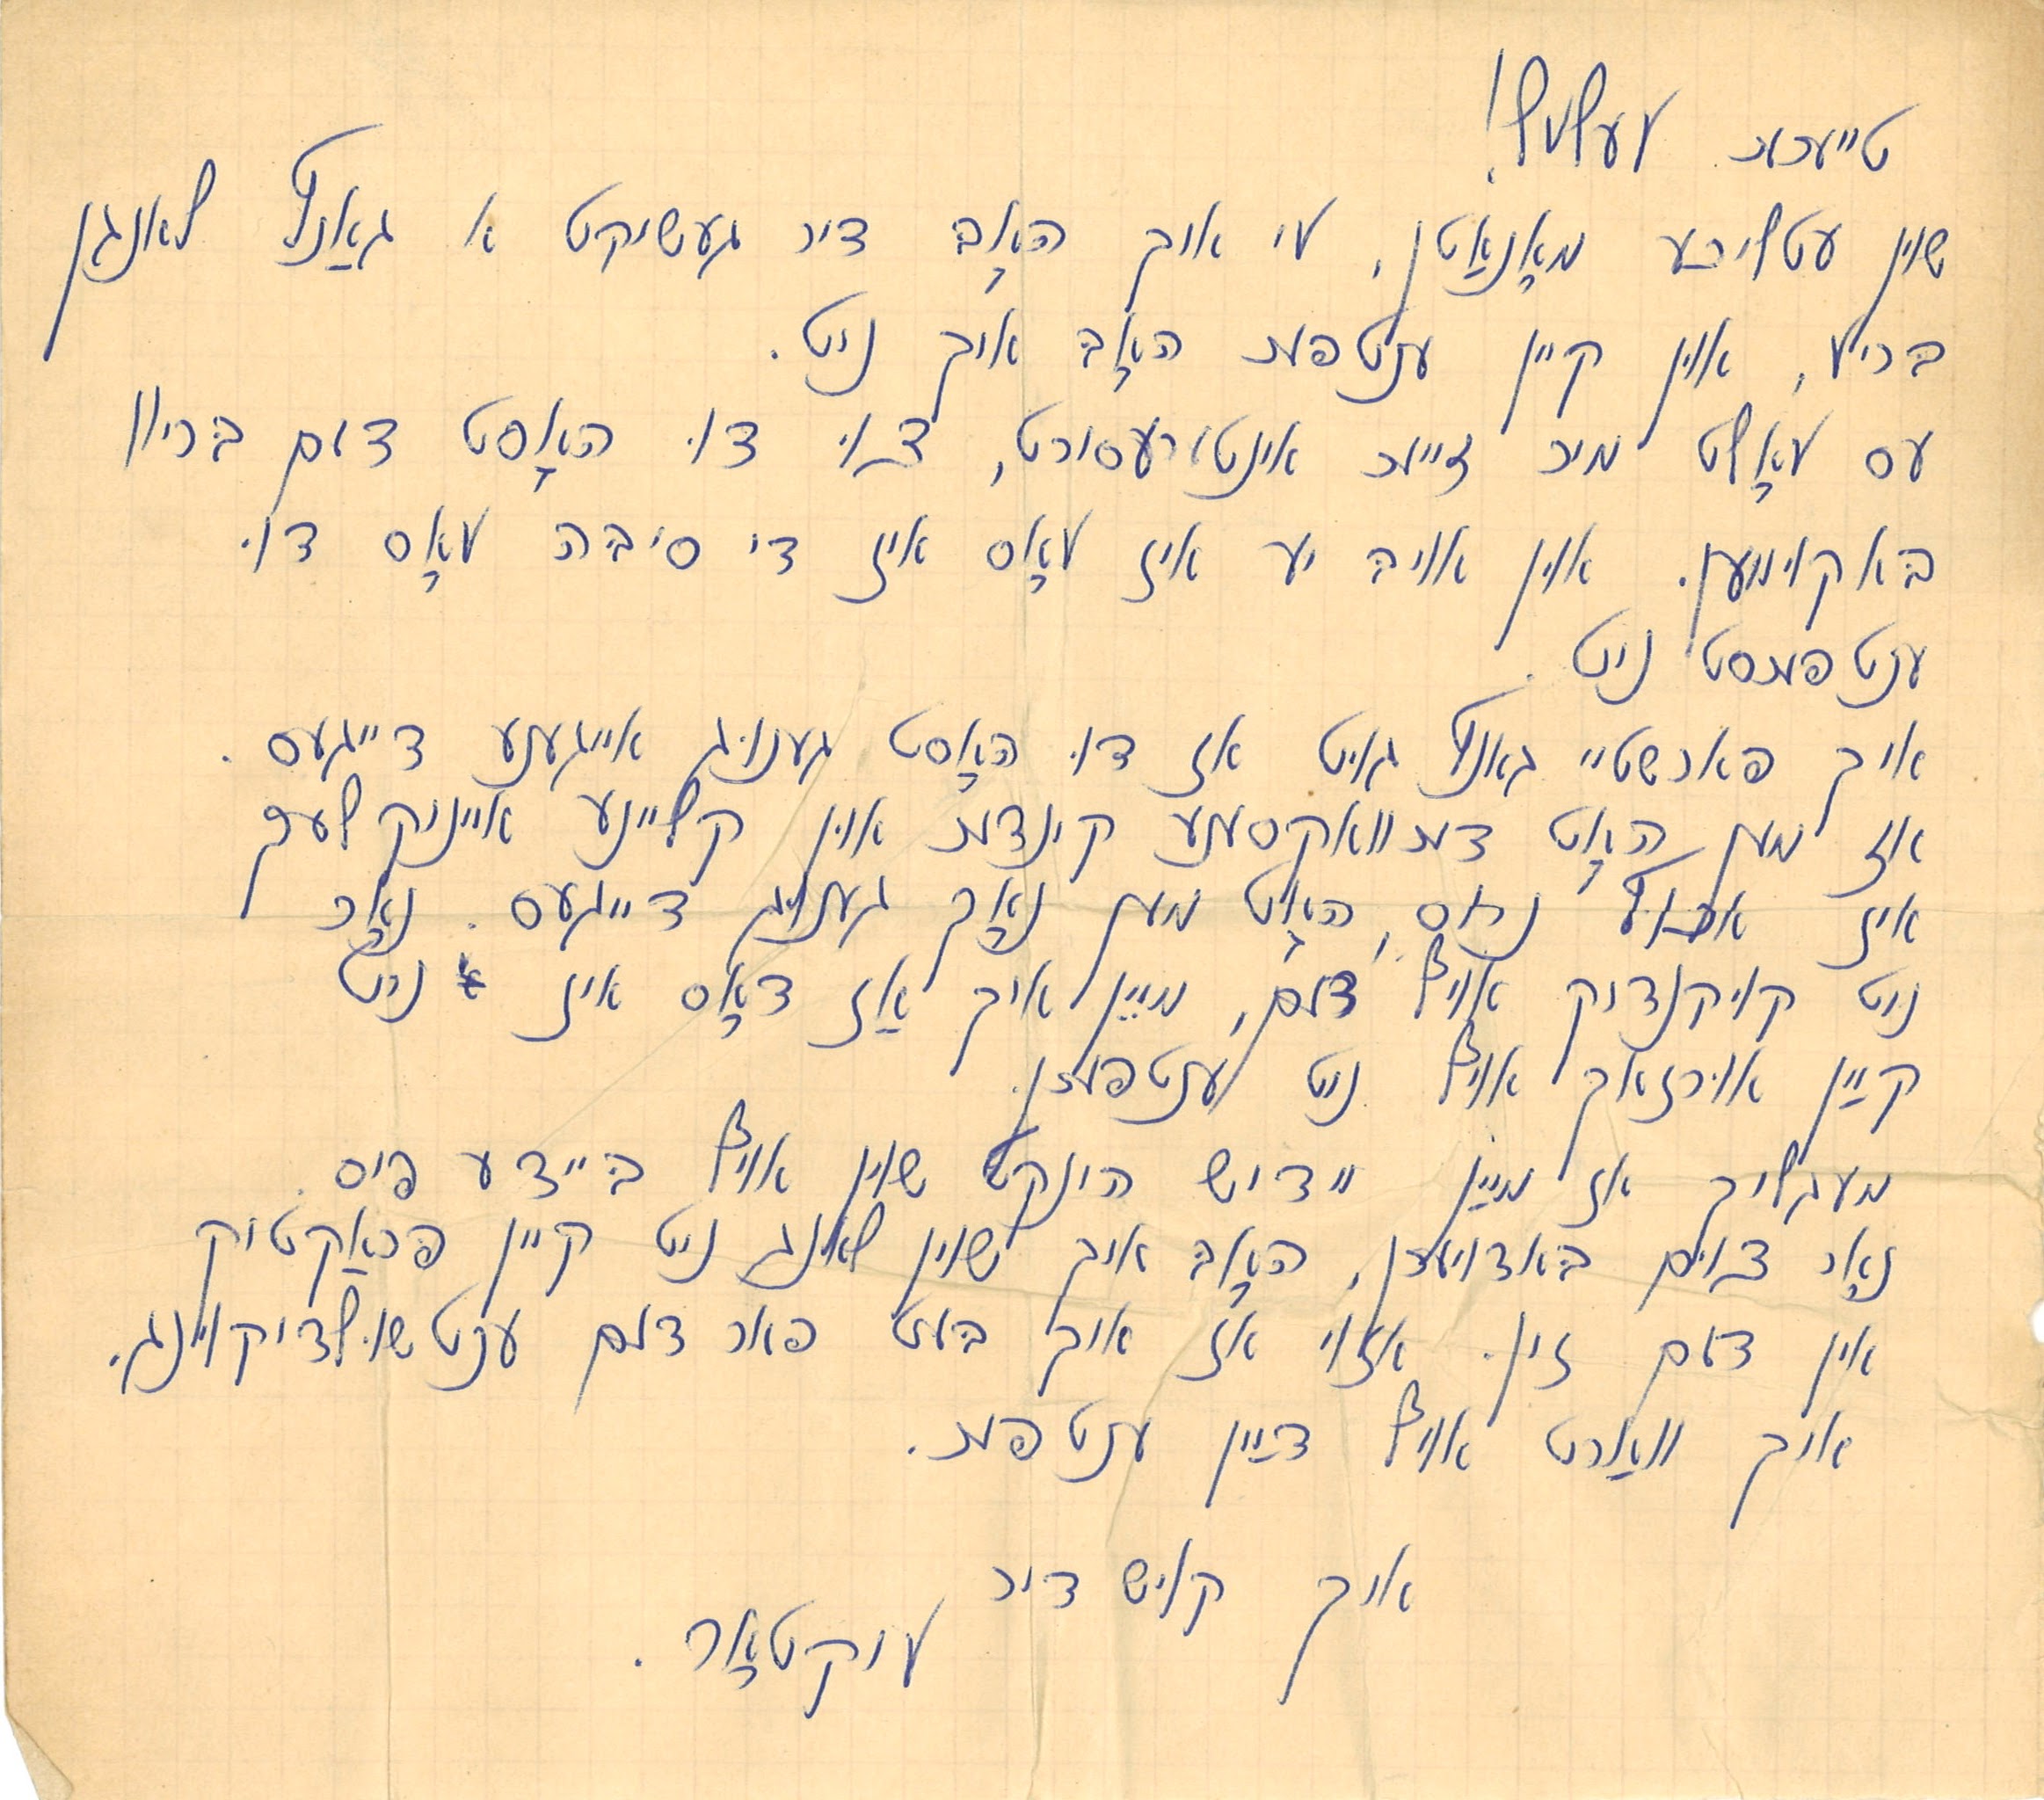 טייערער וועלוול!
שוין עטליכע מאָנאַטן, ווי איך האָב דיר געשיקט א גאַנץ לאנגן
בריוו, אוין קיין ענטפער האָב איך ניט.
עס וואָלט מיר זייער אינטערעסירט, צוי דו האָסט דעם בריוו
באקוימען. אוין אויב יע איז וואָס איז די סיבה וואָס דו
ענטפערסט ניט.
איך פארשטיי גאנץ גויט אז דו האָסט גענוג אייגענע דייגעס.
אז מען האָט דערוואקסענע קינדער אוין קליינע אייניקלעך
איז נחס, האָט מען נאָך גענוג דייגעס. נאָר
ניט קויקנדיק אויף דעם, מיין איך אַז דאָס איז ניט
קיין אורזאך אויף ניט ענטפערן.
מעגליך אז מיין יידיש הינקט שוין אויף ביידע פיס.
נאָר צוים באדויערן, האָב איך שוין לאנג ניט קיין פראַקטיק
אין דעם זין. אזוי אז איך בעט פאר דעם ענטשולדיקוינג.
איך וואַרט אויף דיין ענטפער.
איך קויש דיר
וויקטאָר.